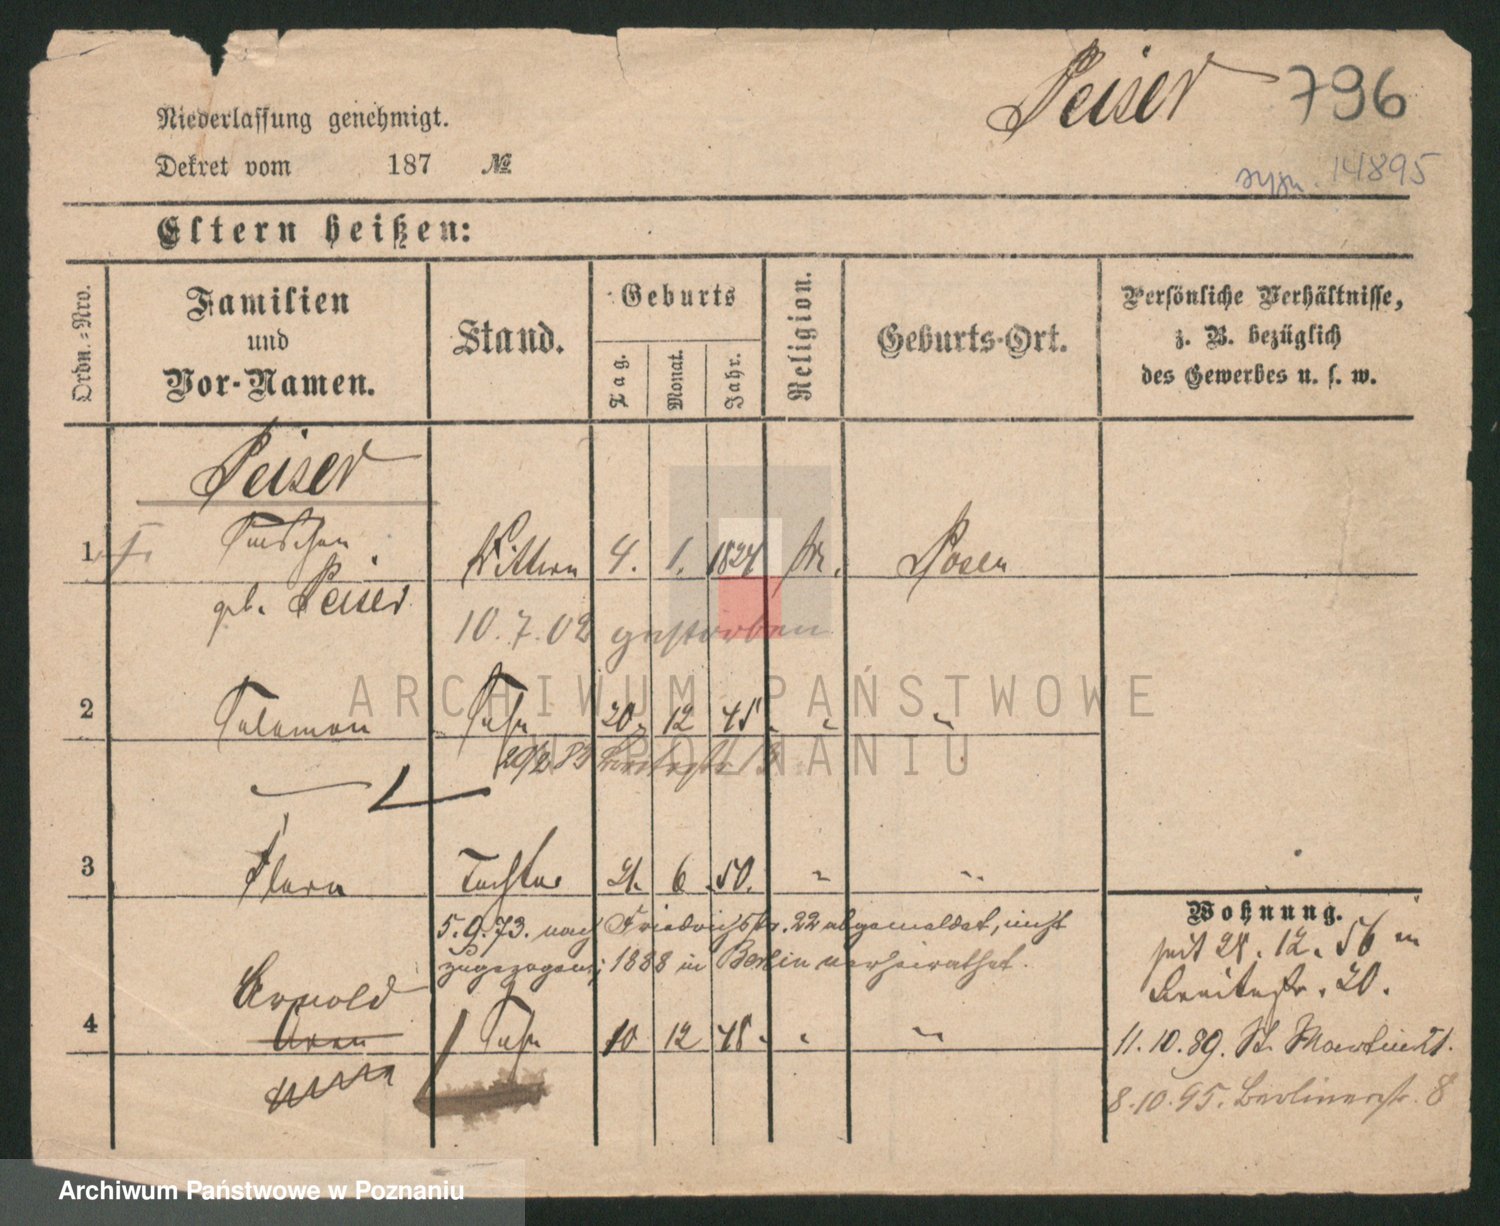 Peiser 796
Niederlassung genehmigt.
Dekret vom 187 №
sygn. 14895
Eltern heißen:
Ordn.-Nro.
Familien und Vor-Namen.
Stand.
Geburts
Tag. Monat. Jahr.
Religion.
Geburts-Ort.
Persönliche Verhältnisse,
z. B. bezüglich
des Gewerbes u. s. w.
Peiser
1 Wittwe 4. 1. 1824 Posen
geb. Peiser
10.7.02 gestorben
2 Salomon Sohn 20. 12 45. " "
ARCHIWUM PAŃSTWOWE
W POZNANIU
3 Flora Tochter 21. 6 50. " "
5.9.73. nach Friedrichstr. 22 abgemeldet, nicht
zugezogen; 1888 in Berlin verheirathet.
Wohnung.
seit 28. 12. 56 in
Breitestr. 20.
Arnold
4 Aron Sohn 10 12 48. " "
11.10.89. St. Martin 21.
8.10.95. Berlinerstr. 8
Archiwum Państwowe w Poznaniu